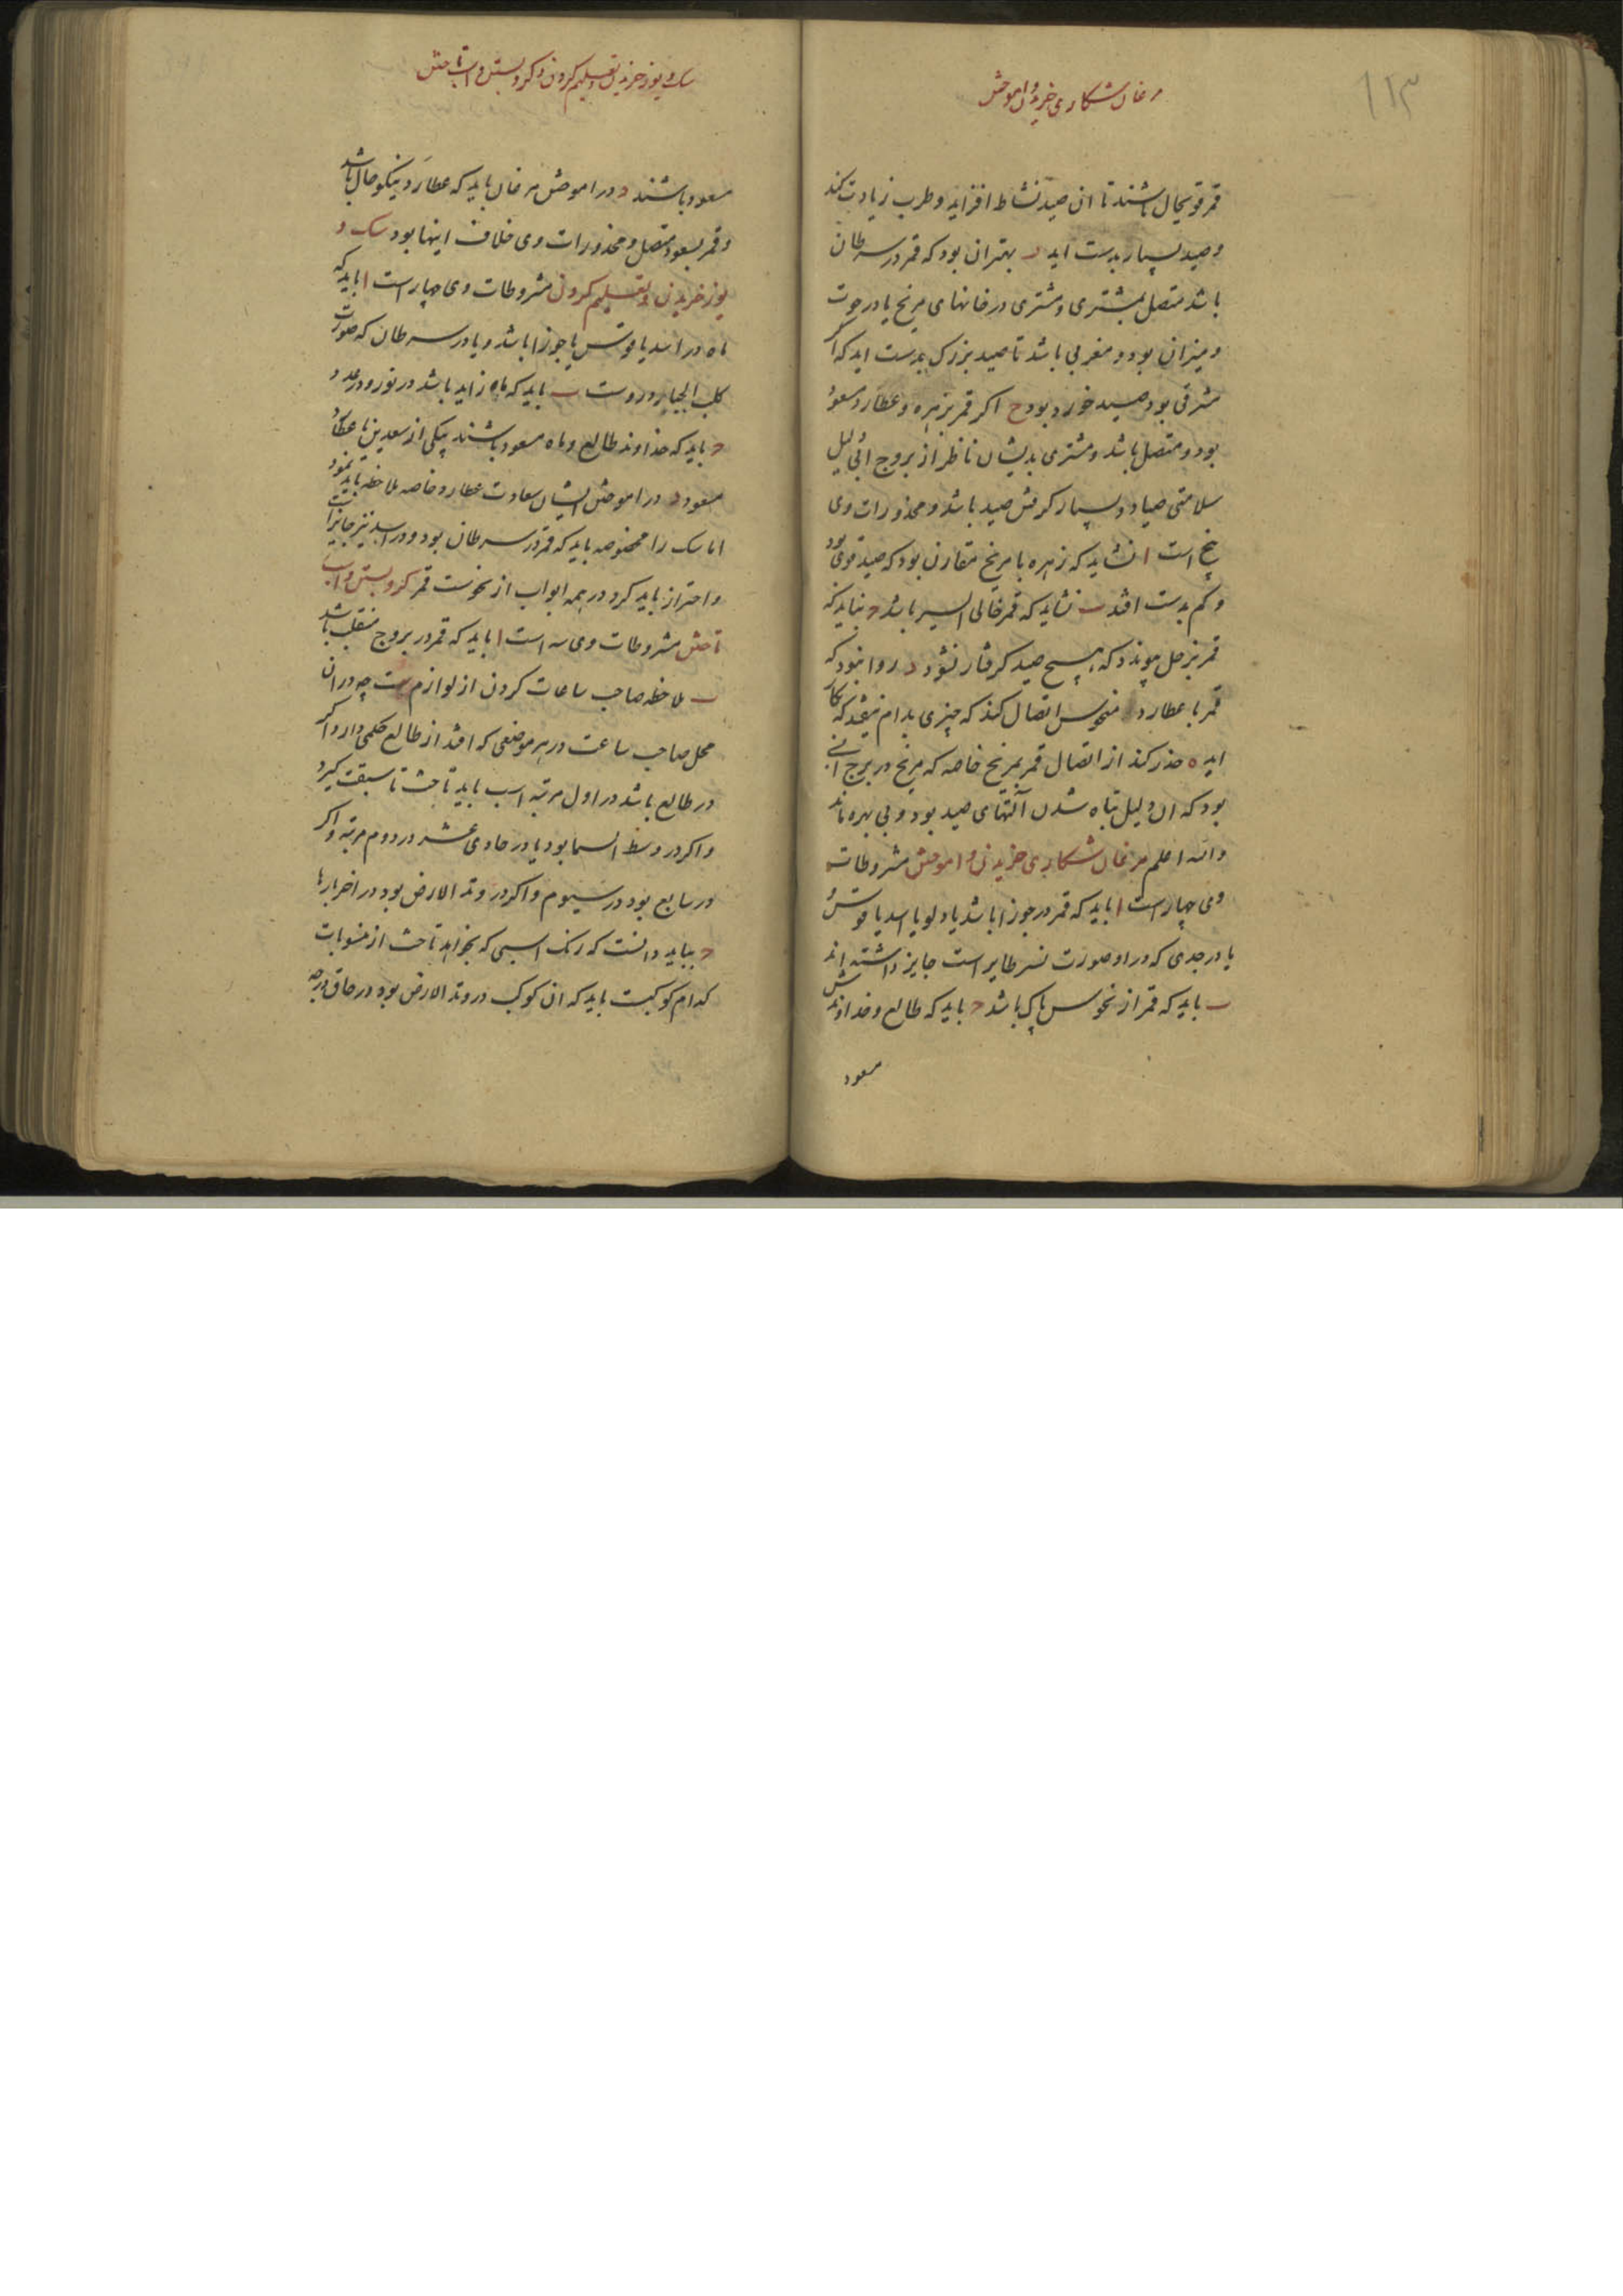 ۱۱۳
مرغان شکاری خریدن و اموختن
قمر قویحال باشند تا ان صید نشاط افزاید و طرب زیادت کند
و صید بسیار بدست اید د بهتر ان بود که قمر در سرطان
باشد متصل بمشتری و مشتری در خانهای مریخ یا در حوت
و میزان بود و مغربی باشد تا صید بزرک بدست اید که اکر
مشرقی بود صید خورد بود ح اکر قمر بزهره و عطارد مسعود
بود و متصل باشد و مشتری بدیشان ناظر از بروج ابی دلیل
سلامتی صیاد و بسیار کرفتن صید باشد و محذورات وی
پنج است ا نشاید که زهره با مریخ مقارن بود که صید قوی بود
و کم بدست افتد ب نشاید که قمر خالی السیر باشد ح نباید که
قمر بزحل پیوندد که هیچ صید کرفتار نشود د روا نبود که
قمر با عطارد منحوس اتصال کند که چیزی بدام نیفتد که بکار
اید ه حذر کند از اتصال قمر بمریخ خاصه که مریخ در برج ابی
بود که ان دلیل تباه شدن آلتهای صید بود و بی بهره ماند
والله اعلم مرغان شکاری خریدن و اموختن مشروطات
وی چهار است ا باید که قمر در جوزا باشد یا دلو یا اسد یا قوس
یا در جدی که در او صورت نسر طایر است جایز داشته اند
ب باید که قمر از نحوس پاک باشد ح باید که طالع و خداوندش
مسعود
سک و یوز خریدن و تعلیم کردن و کرو بستن و اسب تاختن
مسعود باشند د در اموختن مرغان باید که عطارد نیکو حال باشد
و قمر بسعود متصل و محذورات وی خلاف اینها بود سک و
یوز خریدن و تعلیم کردن مشروطات وی چهار است ا باید که
ماه در اسد یا قوس یا جوزا باشد و یا در سرطان که صورت
کلب الجبار دروست ب باید که ماه زاید باشد در نور و در عدد
ح باید که خداوند طالع و ماه مسعود باشند بیکی از سعدین یا عطارد
مسعود د در اموختن ایشان سعادت عطارد خاصه ملاحظه باید نمود
اما سک را مخصوصه باید که قمر در سرطان بود و در اسد نیز جایز است
و احتراز باید کرد در همه ابواب از نحوست قمر کرو بستن و اسب
تاختن مشروطات وی سه است ا باید که قمر در بروج منقلب باشد
ب ملاحظه صاحب ساعات کردن از لوازم است چه در ان
محل صاحب ساعت در هر موضعی که افتد از طالع حکمی دارد اکر
در طالع باشد در اول مرتبه اسب باید تاخت تا سبقت کیرد
و اکر در وسط السما بود یا در حادی عشر در دوم مرتبه و اکر
در سابع بود در سیوم و اکر در وتد الارض بود در اخر بارها
ح بباید دانست که رنک اسبی که بخواهد تاخت از منسوبات
کدام کوکبست باید که ان کوکب در وتد الارض بود در حاق درجه